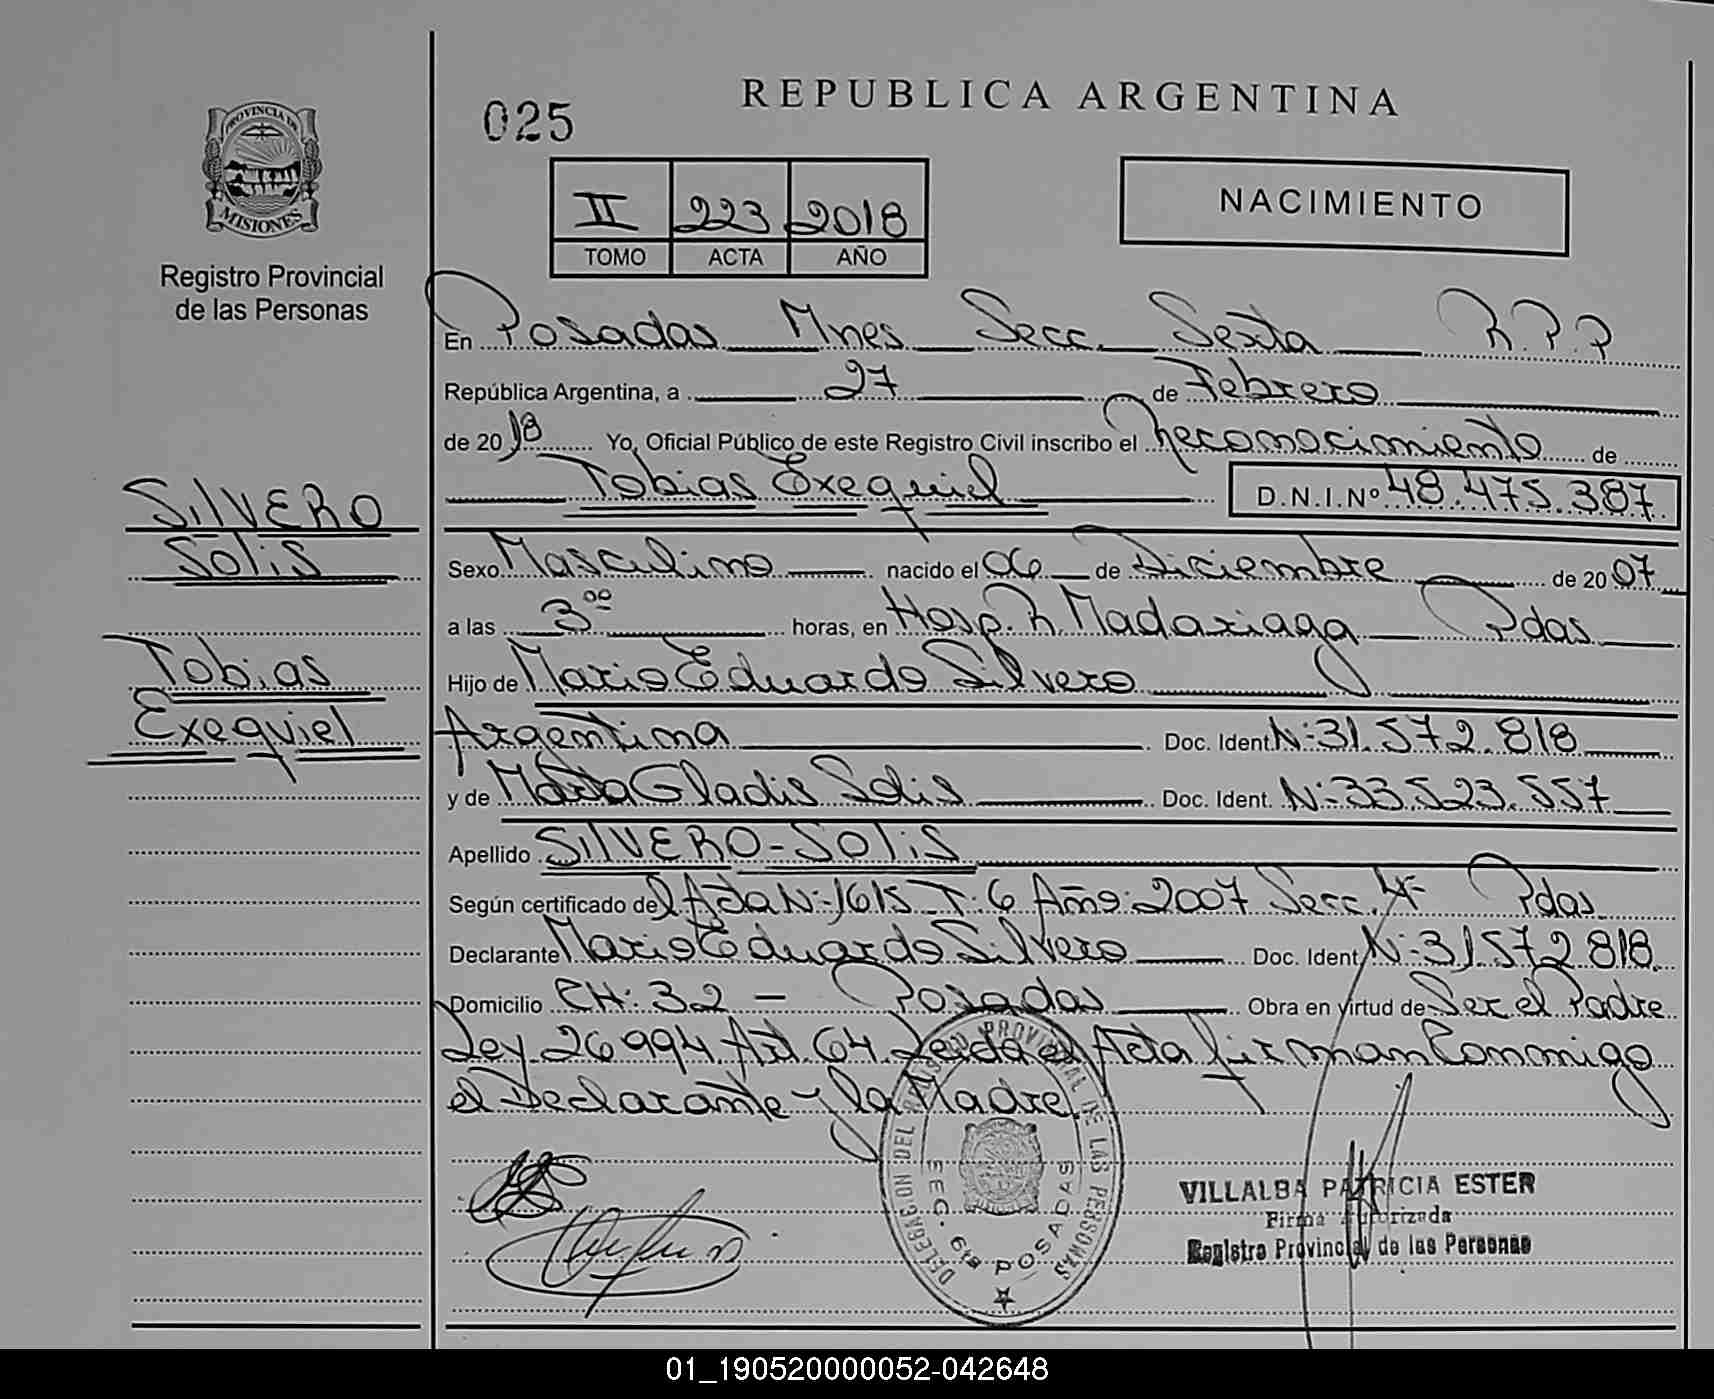 REPUBLICA ARGENTINA
025
PROVINCIA DE
MISIONES
Registro Provincial
de las Personas
II 223 2018
TOMO ACTA AÑO
NACIMIENTO
En Posadas Mnes Secc. Sexta R.P.P
República Argentina, a 27 de Febrero
de 2018 Yo, Oficial Público de este Registro Civil inscribo el Reconocimiento de
Tobias Exequiel D.N.I.Nº 48.475.387
SILVERO
SOLIS
Tobias
Exequiel
Sexo Masculino nacido el 06 de Diciembre de 2007
a las 3⁰⁰ horas, en Hosp. R. Madariaga Pdas
Hijo de Mario Eduardo Silvero
Argentina Doc. Ident. N: 31.572.818
y de Marta Gladis Solis Doc. Ident. N: 33.523.557
Apellido SILVERO-SOLIS
Según certificado del Acta N: 1615 T: 6 Año: 2007 Secc. 4ª Pdas
Declarante Mario Eduardo Silvero Doc. Ident. N: 31.572.818
Domicilio CH: 32 - Posadas Obra en virtud de Ser el Padre
Ley 26994 Art 64 Leida el Acta firman Conmigo
el Declarante y la Madre.
DELEGACION DEL REGISTRO PROVINCIAL DE LAS PERSONAS
SEC. 6ta POSADAS
VILLALBA PATRICIA ESTER
Firma Autorizada
Registro Provincial de las Personas
01_190520000052-042648